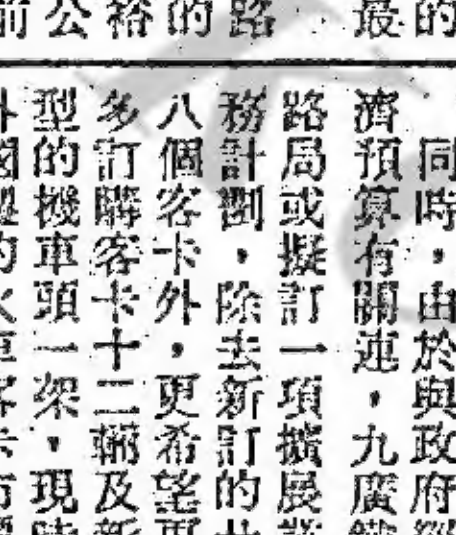 最的
前公裕的路
同時，由於與政府
濟預算有關連，九廣
路局或擬訂一項擴展
務計劃，除去新訂的
八個客卡外，更希望
多訂購客卡十二輛及
型的機車頭一架，現